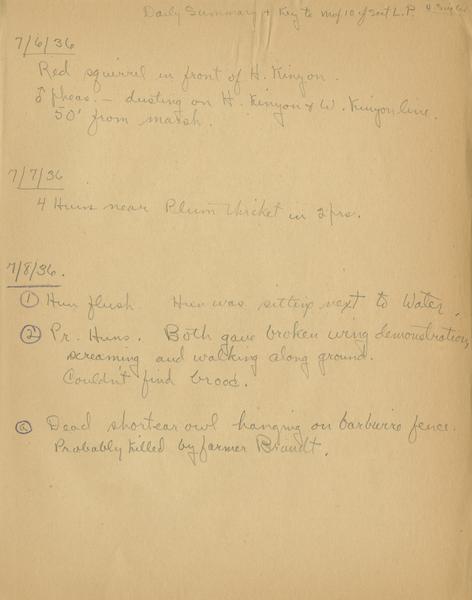 Daily Summary + Key to Map 10 of Sect L.P.
7/6/36
Red squirrel in front of H. Kinyon.
♂ pheas. — dusting on H. Kinyon & W. Kinyon line.
50' from marsh.
7/7/36
4 Huns near Plum thicket in 2 prs.
7/8/36.
① Hun flush. Hun was sitting next to water.
② Pr. Huns. Both gave broken wing demonstration,
screaming and walking along ground.
Couldn't find brood.
ⓐ Dead shortear owl hanging on barbwire fence.
Probably killed by farmer Brandt.